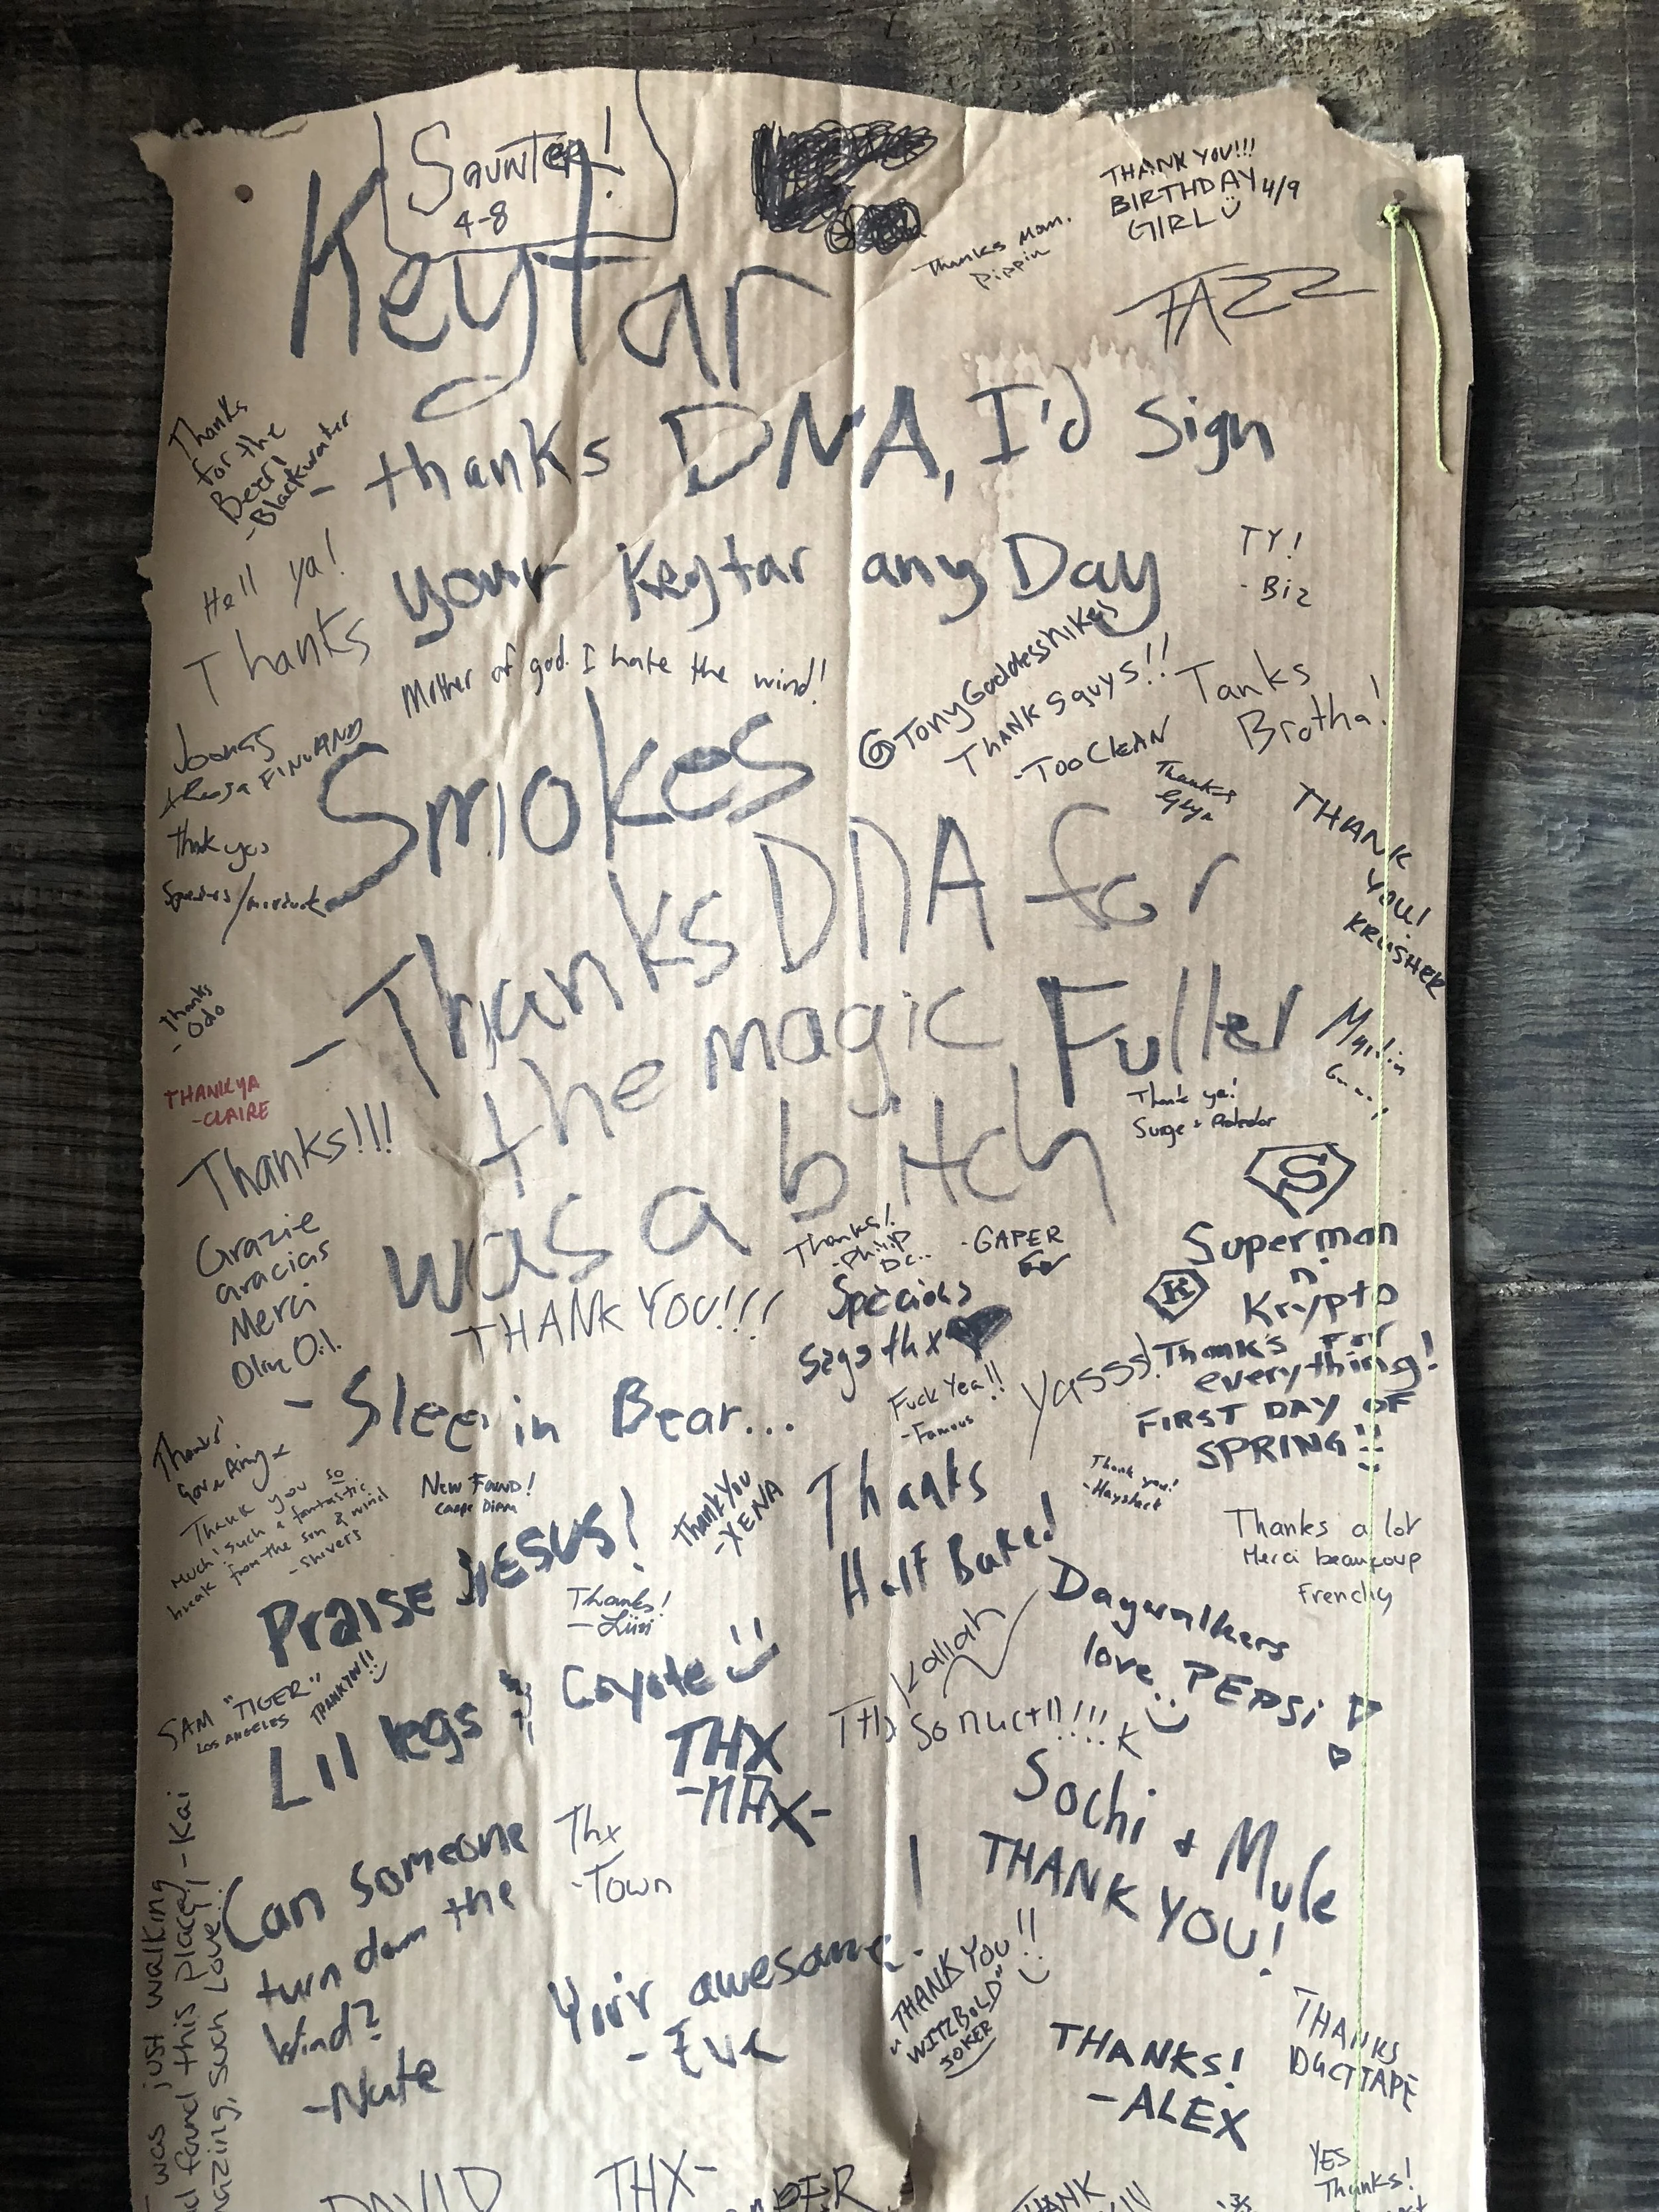 Saunter!
4-8
Keytar
THANK YOU!!!
BIRTHDAY 4/9
GIRL
Thanks Mom.
Pippin
TAZZ
Thanks
for the
Beer!
-Blackwater
- thanks DNA, I'd Sign
your Keytar any Day
TY!
- Biz
Hell ya!
Thanks
Mother of god. I hate the wind!
@TonyGoddesshikes
THANKS guys!!
-TOO CLEAN
Tanks
Brotha!
Joonas
+ Roosa FINLAND
Smokes
Thanks
THANK
YOU!
KRUSHER
Thank you
- Thanks DNA for
the magic Fuller
was a bitch
Thanks
- Odo
THANK YA
-CLAIRE
Thank ya!
Surge +
Thanks!!!
Grazie
Gracias
Merci
Olive Oil
S
Superman
n
K
Krypto
Thanks for
everything!
FIRST DAY OF
SPRING
Thanks!
-Philip
DC..
-GAPER
THANK YOU!!!
Specious
says thx
Fuck Yea!!
-Famous
Yasss!
- Sleep in Bear...
Thanks!
Thank you so
much! such a fantastic
break from the sun & wind
-Shivers
New Found!
Carpe Diem
Thank You
-XENA
Thanks
Half Baked
Thank you!
-Haystack
Thanks a lot
Merci beaucoup
Frenchy
Praise JESUS!
Thanks!
- Liisi
Kaliah
Daywalkers
love PEPSI
SAM "TIGER"
LOS ANGELES
THANKYOU!!
Lil legs & Coyote
THX
-MAX-
THX So Much!!!! K
Sochi + Mule
THANK
YOU!
Can someone
turn down the
Wind?
-Nate
Thx
-Town
Your awesome.
- Eve
THANK YOU!!
"WITZBOLD"
JOKER
THANKS!
-ALEX
THANKS
DUCTTAPE
was just walking
found this place! - Kai
such Love!
DAVID
THX-
THANK
YES
Thanks!